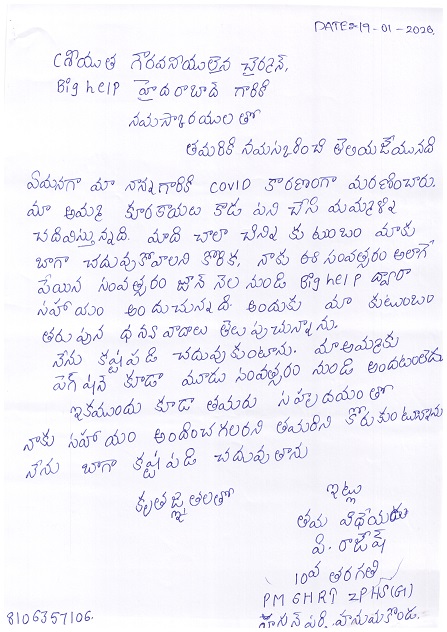 DATE:-19-01-2026.
శ్రీయుత గౌరవనీయులైన చైర్మన్,
Big help హైదరాబాద్ గారికి
నమస్కారములతో
తమరికి నమస్కరించి తెలియజేయునది
ఏమనగా మా నాన్నగారికి COVID కారణంగా మరణించారు.
మా అమ్మ కూరగాయలు కాడ పని చేసి మమ్మల్ని
చదివిస్తున్నది. మాది చాలా చిన్న కుటుంబం మాకు
బాగా చదువుకోవాలని కోరిక, నాకు ఈ సంవత్సరం అలాగే
పోయిన సంవత్సరం జూన్ నెల నుండి Big help ద్వారా
సహాయం అందుచున్నది అందుకు మా కుటుంబం
తరుపున ధన్యవాదాలు తెలుపుచున్నాను.
నేను కష్టపడి చదువుకుంటాను. మా అమ్మకు
పెన్షన్ కూడా మూడు సంవత్సరం నుండి అందటంలేదు
ఇకముందు కూడా తమరు సహృదయంతో
నాకు సహాయం అందించగలరని తమరిని కోరుకుంటున్నాను
నేను బాగా కష్టపడి చదువుతాను
కృతజ్ఞతలతో
ఇట్లు
తమ విధేయుడు
పి. రాజేష్
10వ తరగతి
PM SHRI ZPHS(G)
హసన్ పర్తి, హనుమకొండ.
8106357106.